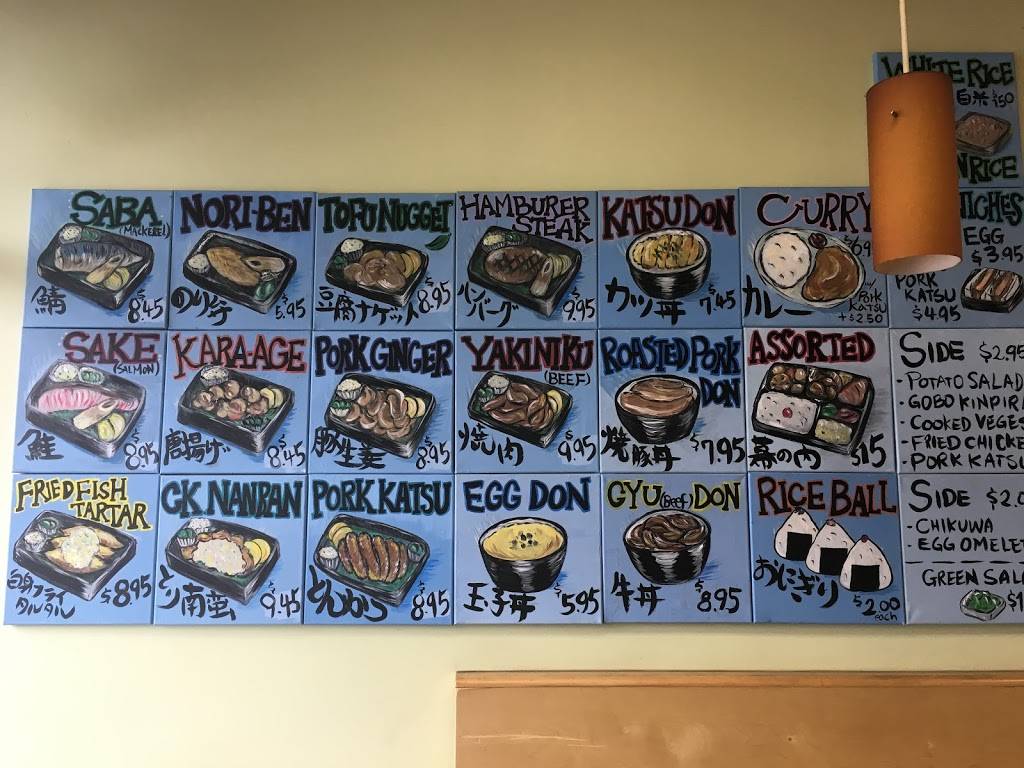 WHITE RICE
白米 $1.50
RICE
SABA
(MACKEREL)
鯖
$8.45
NORI-BEN
のり弁
$5.95
TOFU NUGGET
豆腐ナゲット
$8.95
HAMBURER
STEAK
ハンバーグ
$9.95
KATSU DON
カツ丼
$7.45
CURRY
カレー
W/
PORK
KATSU
+$2.50
EGG
$3.95
PORK
KATSU
$4.95
SAKE
(SALMON)
鮭
$8.95
KARA-AGE
唐揚げ
$8.45
PORK GINGER
豚生姜
$8.95
YAKINIKU
(BEEF)
焼肉
$9.95
ROASTED PORK
DON
焼豚丼
$7.95
ASSORTED
幕の内
$15
SIDE $2.95
- POTATO SALAD
- GOBO KINPIRA
- COOKED VEGES
- FRIED CHICKE
- PORK KATSU
FRIED FISH
TARTAR
白身フライ
タルタル
$8.95
CK NANBAN
とり南蛮
$9.45
PORK KATSU
とんかつ
$8.95
EGG DON
玉子丼
$5.95
GYU (Beef) DON
牛丼
$8.95
RICE BALL
おにぎり
$2.00
each
SIDE
- CHIKUWA
- EGG OMELET
GREEN SALA